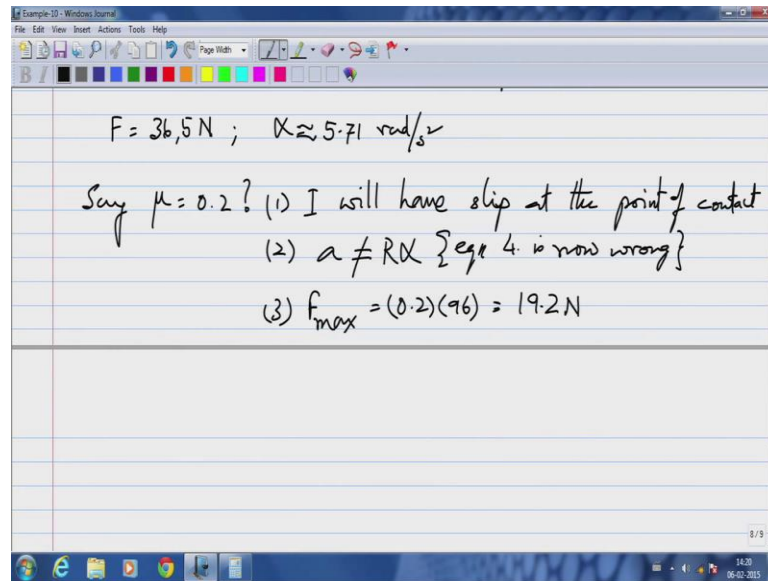 Example-10 - Windows Journal
File Edit View Insert Actions Tools Help
Page Width
B I
F = 36,5 N ; α ≈ 5.71 rad/s²
Say μ = 0.2? (1) I will have slip at the point of contact
(2) a ≠ Rα {eqn 4. is now wrong}
(3) f max = (0.2)(96) = 19.2 N
8/9
14:20
06-02-2015